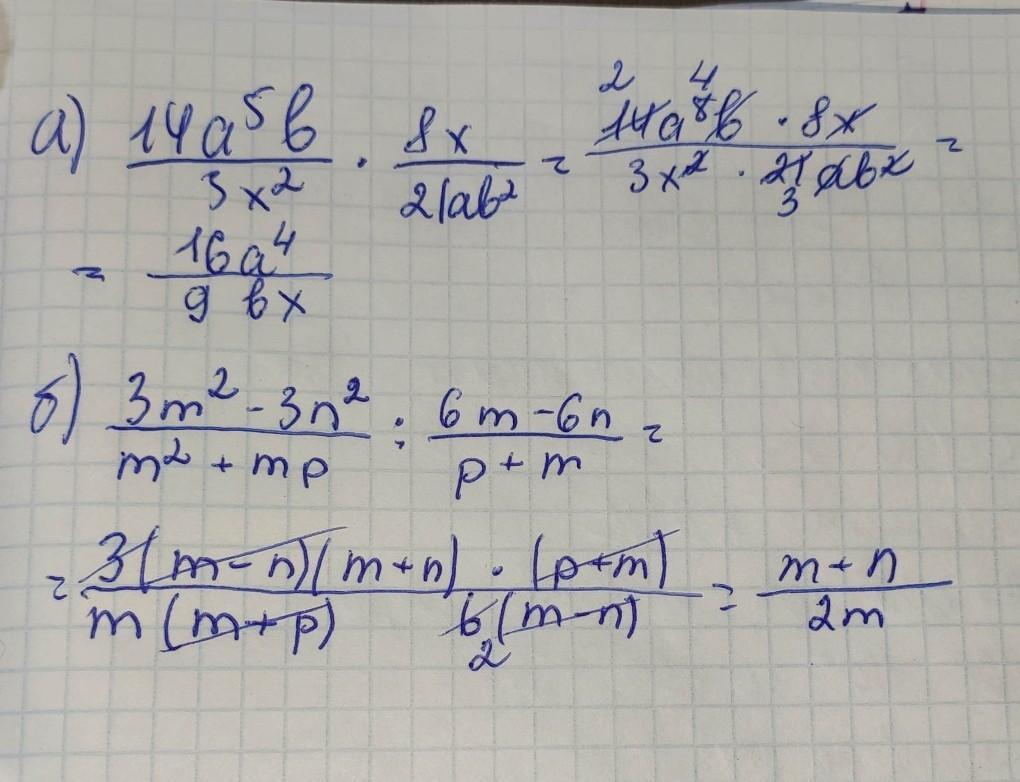 а) 14a⁵b/3x² · 8x/21ab² = 14a⁵b · 8x/3x² · 21ab² =
= 16a⁴/9bx
б) 3m² - 3n²/m² + mp : 6m - 6n/p + m =
= 3(m - n)(m + n) · (p + m)/m(m + p) 6(m - n) = m + n/2m